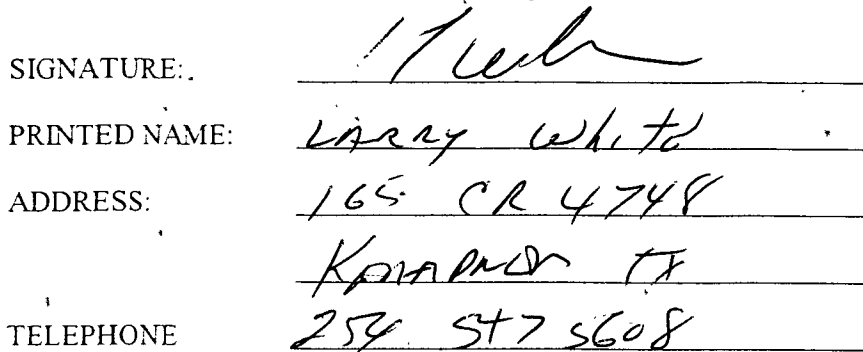 SIGNATURE:
PRINTED NAME: LARRY White
ADDRESS: 165 CR 4748
TX
TELEPHONE 254 547 5608